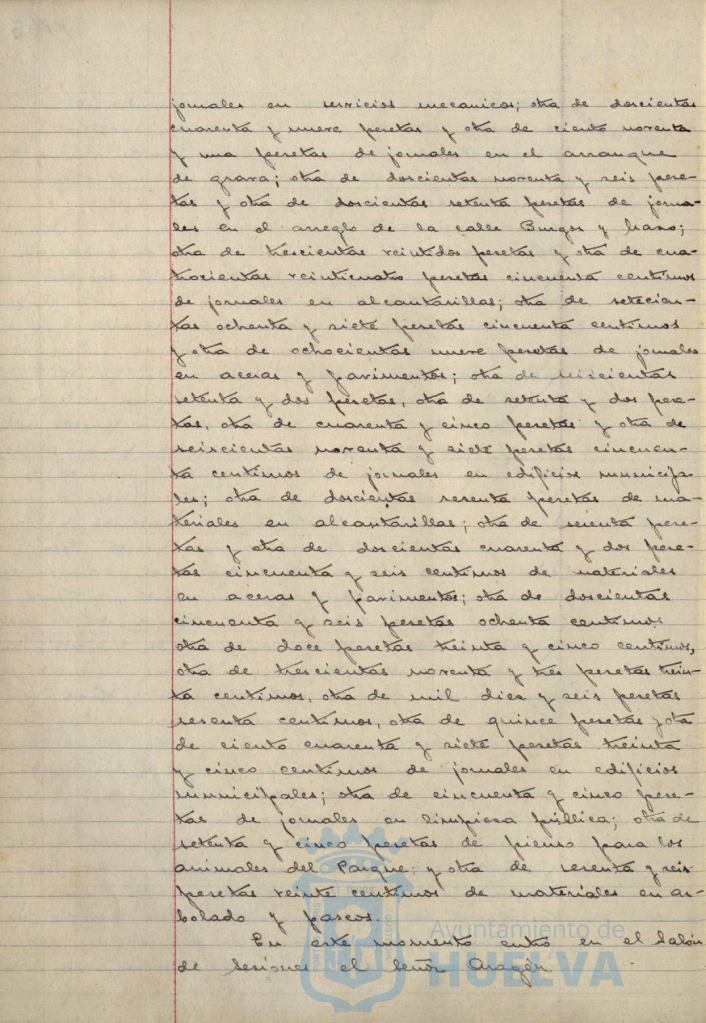 jornales en servicios mecanicos; otra de doscientas
cuarenta y nueve pesetas y otra de ciento noventa
y una pesetas de jornales en el arranque
de grava; otra de doscientas noventa y seis pese-
tas y otra de doscientas setenta pesetas de jorna-
les en el arreglo de la calle Burgos y Mazo;
otra de trescientas veintidos pesetas y otra de cua-
trocientas veinticuatro pesetas cincuenta centimos
de jornales en alcantarillas; otra de setecien-
tas ochenta y siete pesetas cincuenta centimos
y otra de ochocientas nueve pesetas de jornales
en aceras y pavimentos; otra de seiscientas
setenta y dos pesetas, otra de setenta y dos pese-
tas, otra de cuarenta y cinco pesetas y otra de
seiscientas noventa y siete pesetas cincuen-
ta centimos de jornales en edificios municipa-
les; otra de doscientas sesenta pesetas de ma-
teriales en alcantarillas; otra de sesenta pese-
tas y otra de doscientas cuarenta y dos pese-
tas cincuenta y seis centimos de materiales
en aceras y pavimentos; otra de doscientas
cincuenta y seis pesetas ochenta centimos
otra de doce pesetas treinta y cinco centimos,
otra de trescientas noventa y tres pesetas trein-
ta centimos, otra de mil diez y seis pesetas
sesenta centimos, otra de quince pesetas y otra
de ciento cuarenta y siete pesetas treinta
y cinco centimos de jornales en edificios
municipales; otra de cincuenta y cinco pese-
tas de jornales en limpieza pública; otra de
setenta y cinco pesetas de pienso para los
animales del Parque; y otra de sesenta y seis
pesetas veinte centimos de materiales en ar-
bolado y paseos.
En este momento entró en el Salón
de Sesiones el señor Aragón.
Ayuntamiento de
HUELVA